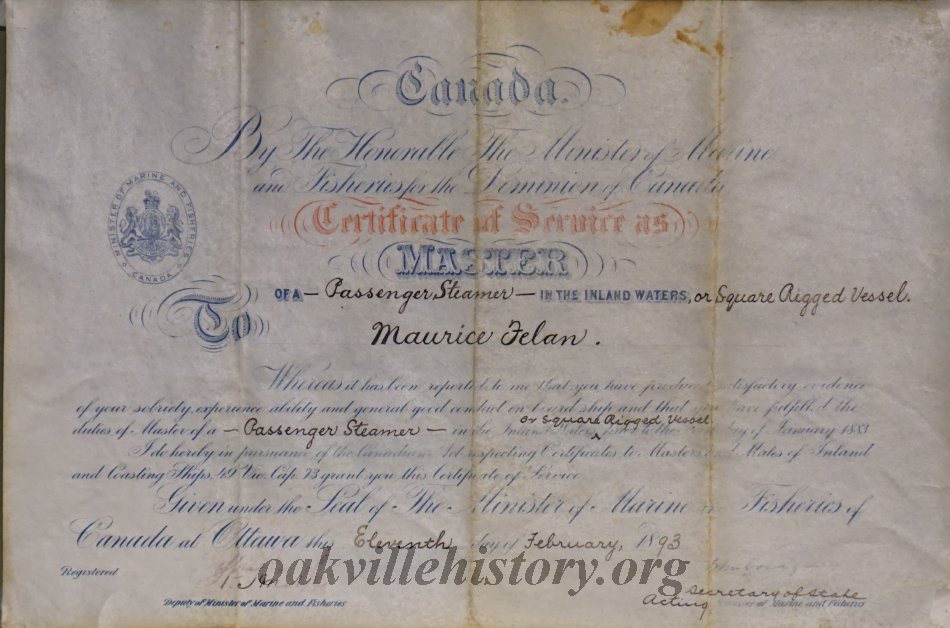 Canada.
By The Honorable The Minister of Marine
and Fisheries for the Dominion of Canada
MINISTER OF MARINE AND FISHERIES CANADA
Certificate of Service as
MASTER
OF A — Passenger Steamer — IN THE INLAND WATERS, or Square Rigged Vessel.
To
Maurice Felan.
Whereas it has been reported to me that you have produced satisfactory evidence
of your sobriety, experience ability and general good conduct on board ship and that you have fulfilled the
or Square Rigged Vessel
duties of Master of a — Passenger Steamer — in the Inland Waters prior to the day of January 1883
I do hereby in pursuance of the Canadian Act respecting Certificates to Masters and Mates of Inland
and Coasting Ships, 49 Vic. Cap. 73 grant you this Certificate of Service.
Given under the Seal of The Minister of Marine and Fisheries of
Canada at Ottawa this Eleventh day of February, 1893
Registered
oakvillehistory.org
Secretary of State
Deputy of Minister of Marine and Fisheries
Acting Minister of Marine and Fisheries